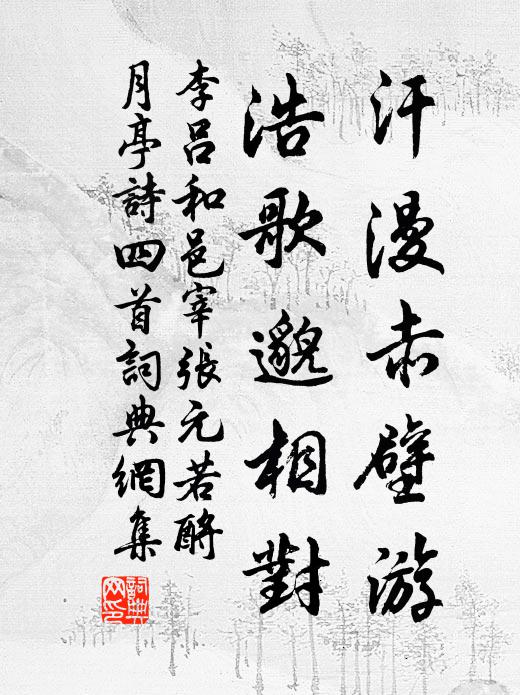 汗漫赤壁游
浩歌邈相對
李呂和邑宰張元若酹
月亭詩四首詞典網集
詞典網印